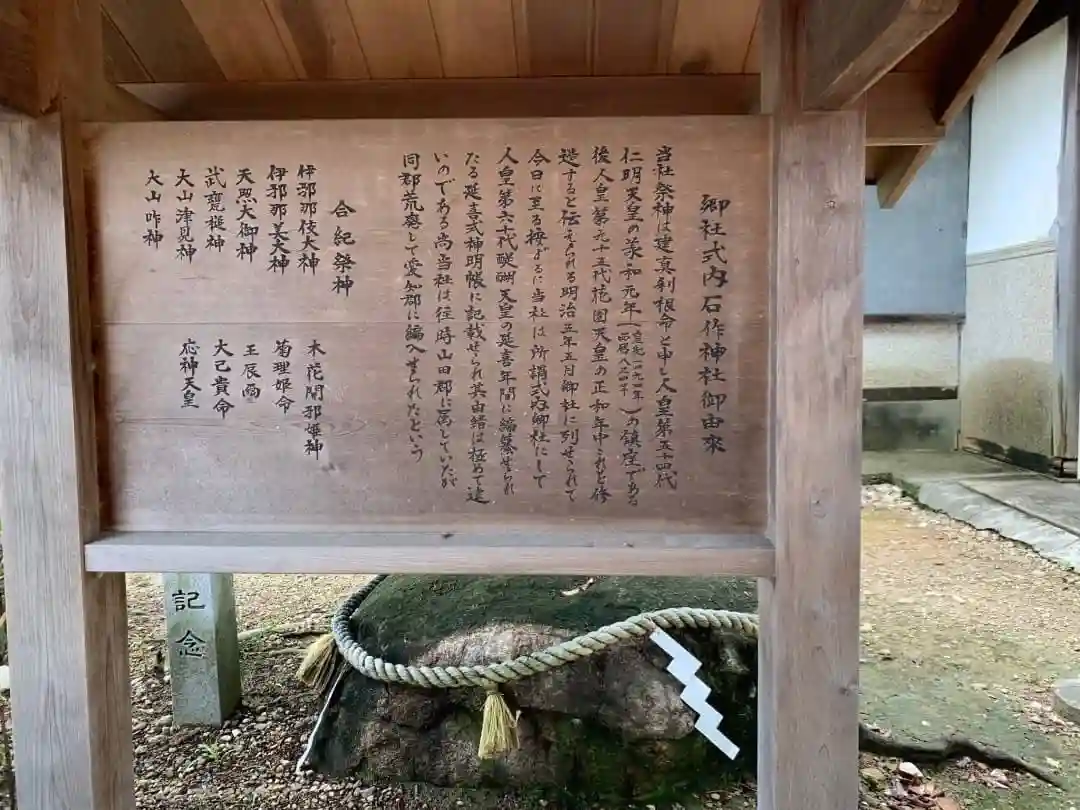 郷社式内石作神社御由来
当社祭神は建真利根命と申し人皇第五十四代
仁明天皇の承和元年(皇紀一四九四年 西暦八三四年)の鎮座である
後人皇第九十五代花園天皇の正和年中これを修
造すると伝えられる明治五年五月郷社に列せられて
今日に至る按ずるに当社は所謂式内郷社にして
人皇第六十代醍醐天皇の延喜年間に編纂せられ
たる延喜式神明帳に記載せられ其由緒は極めて遠
いのである尚当社は往時山田郡に属していたが
同郡荒廃して愛知郡に編入せられたという
合紀祭神
伊邪那伎大神
伊邪那美大神
天照大御神
武甕槌神
大山津見神
大山咋神
木花開邪姫神
菊理姫命
王辰爾
大己貴命
応神天皇
記念